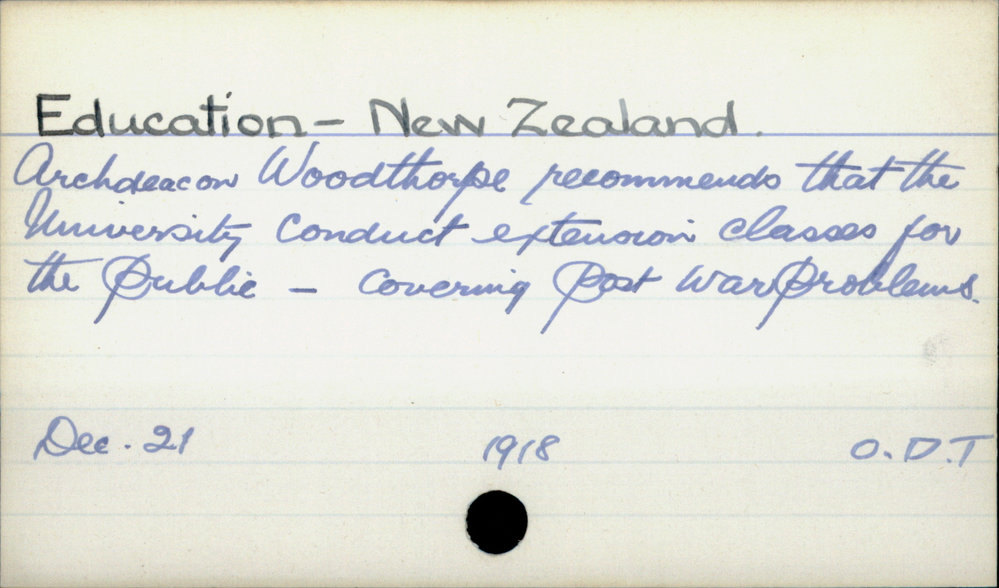 Education - New Zealand.
Archdeacon Woodthorpe recommends that the
University conduct extension classes for
the Public - covering Post War Problems.
Dec. 21 1918 O.D.T